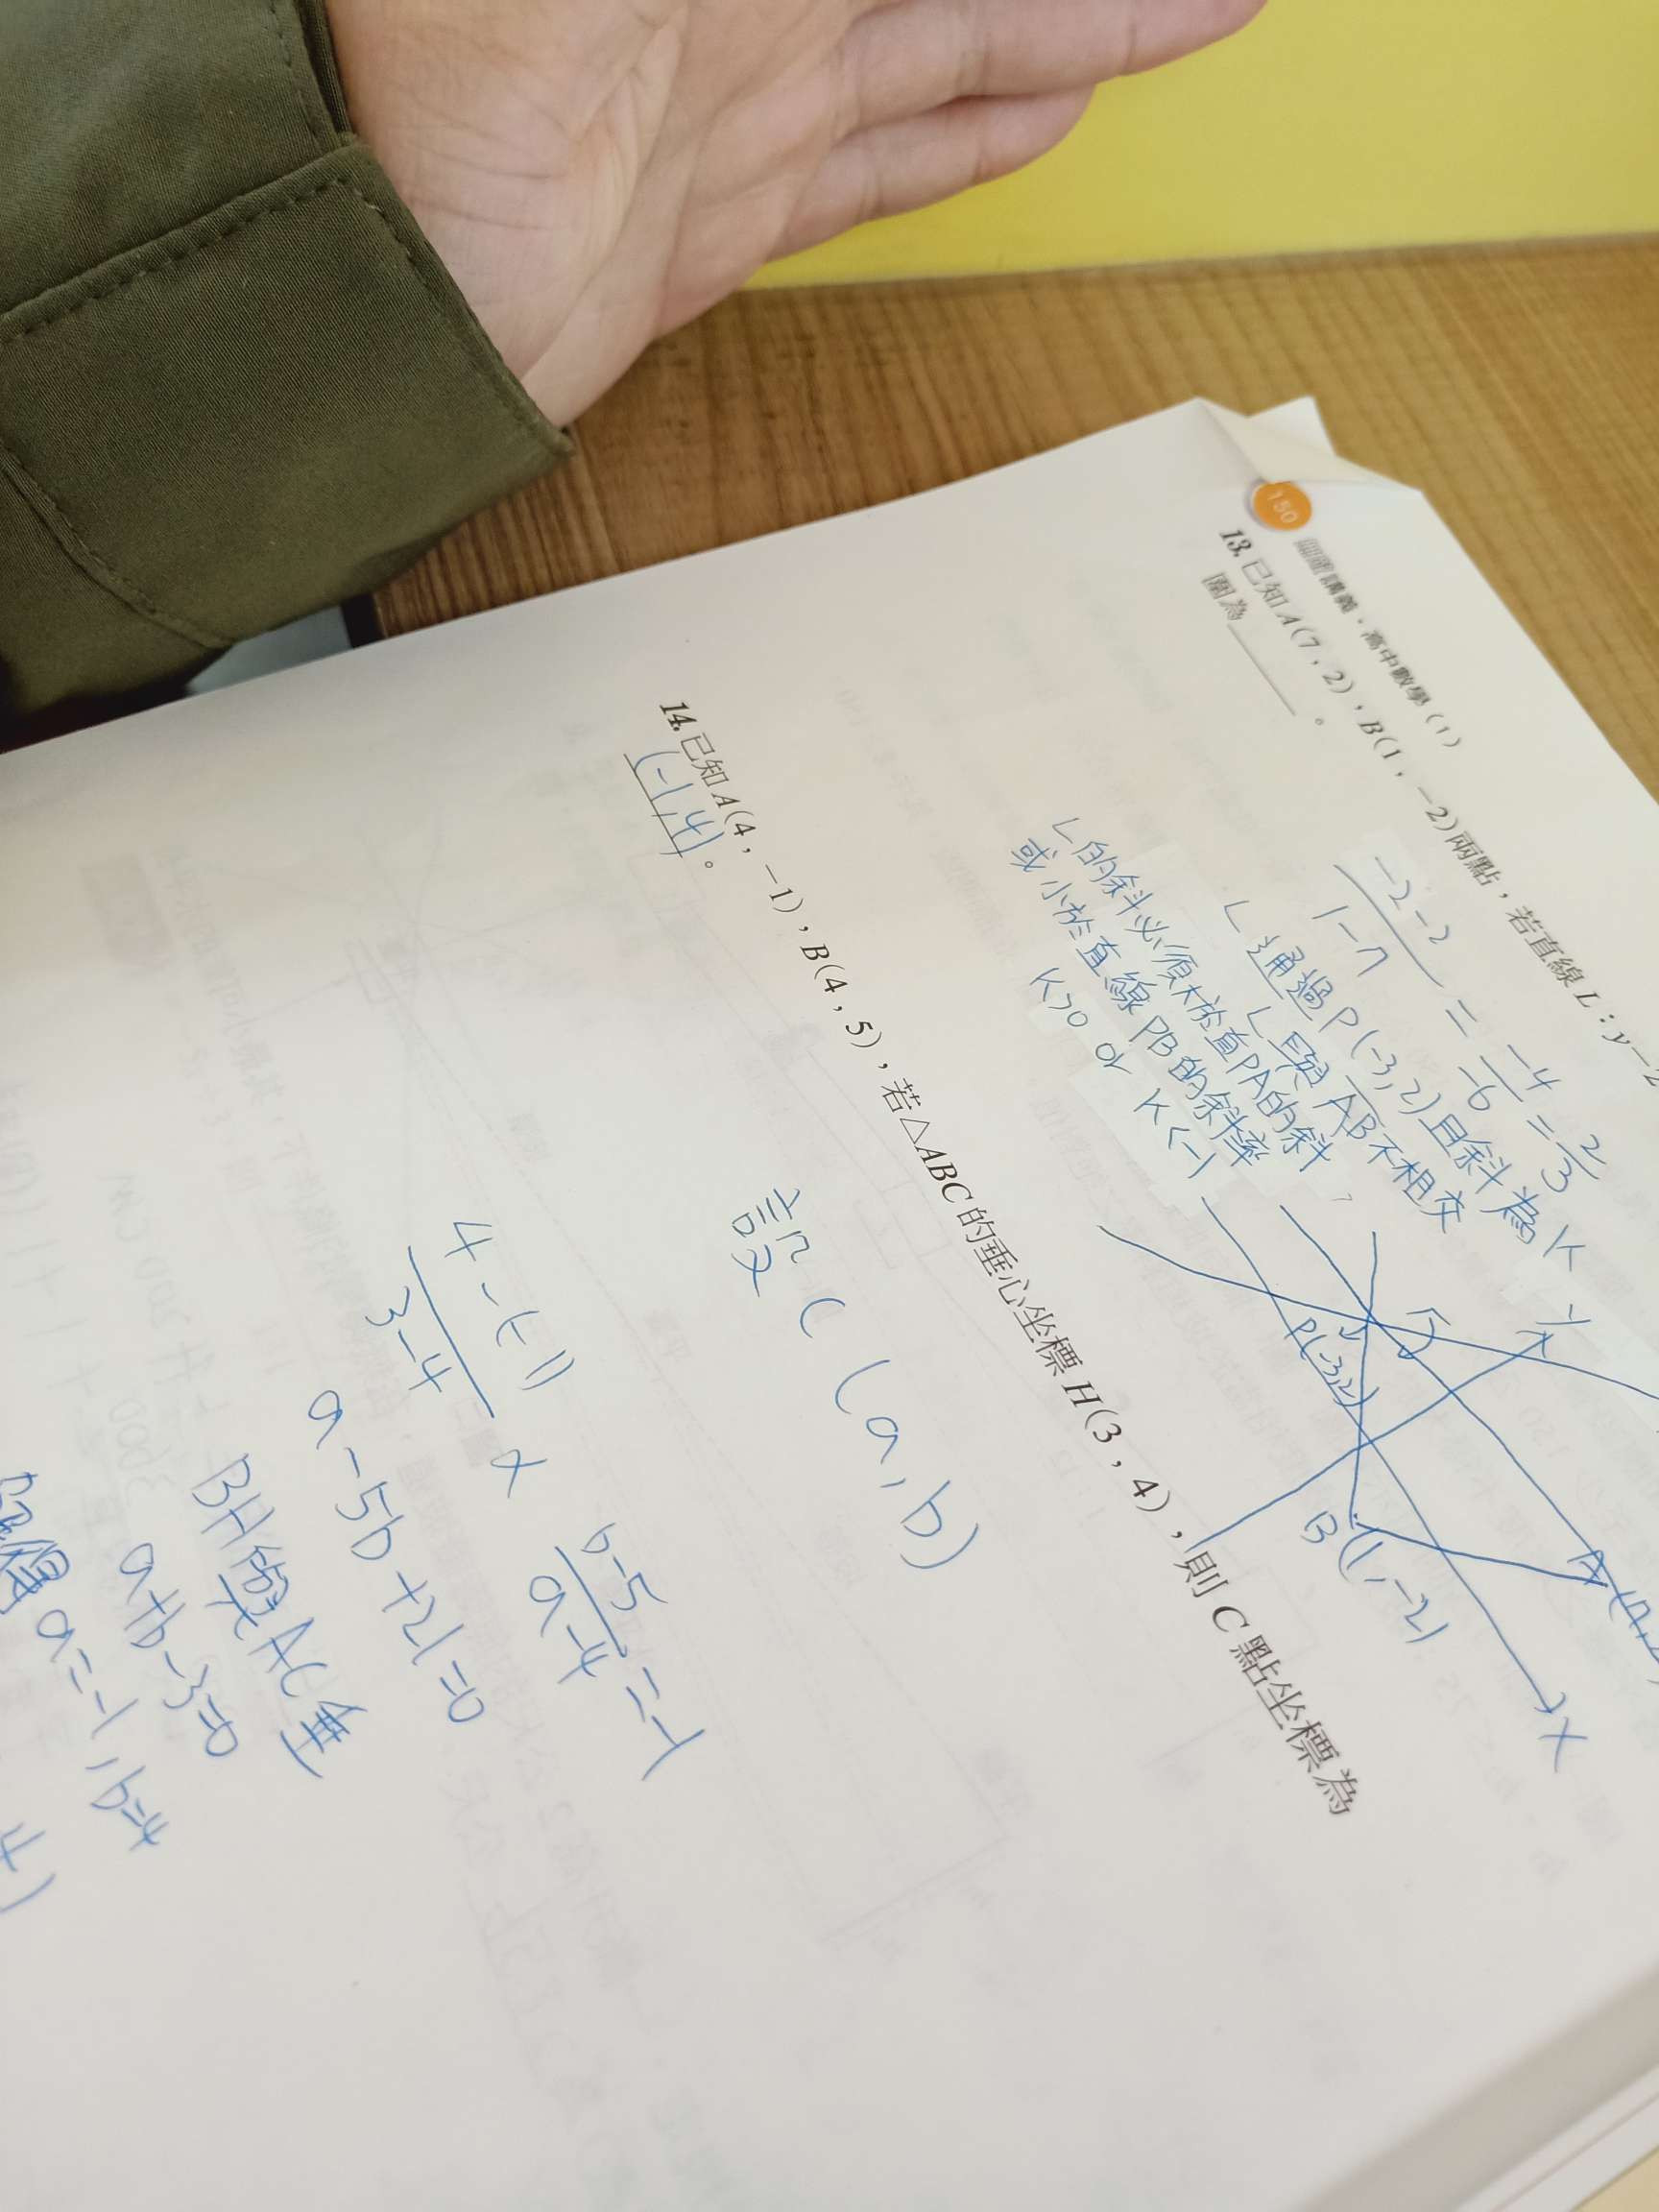 150
講義・高中數學(1)
13. 已知A(7,2),B(1,-2)兩點,若直線L:y-2
圍為______。
-2-2
1-7
=
-4
-6
=
2
3
L通過P(-3,2)且斜為K
L與AB不相交
L的斜必須大於直PA的斜
或小於直線PB的斜率
K>0 or K<-1
y
P(-3,2)
B(1,-2)
x
14. 已知A(4,-1),B(4,5),若△ABC的垂心坐標H(3,4),則C點坐標為
(-1,4)。
設C(a,b)
4-(-1)
3-4
×
b-5
a-4
=-1
a-5b+21=0
BH與AC垂
a+b-3=0
a=-1,b=4